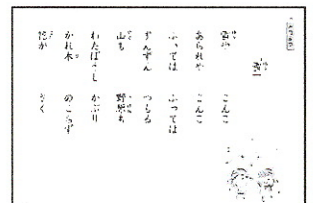 雪
雪や　こんこ
あられや　こんこ
ふっては　ふっては
ずんずん　つもる
山も　野原も
わたぼうし　かぶり
かれ木　のこらず
花が　さく